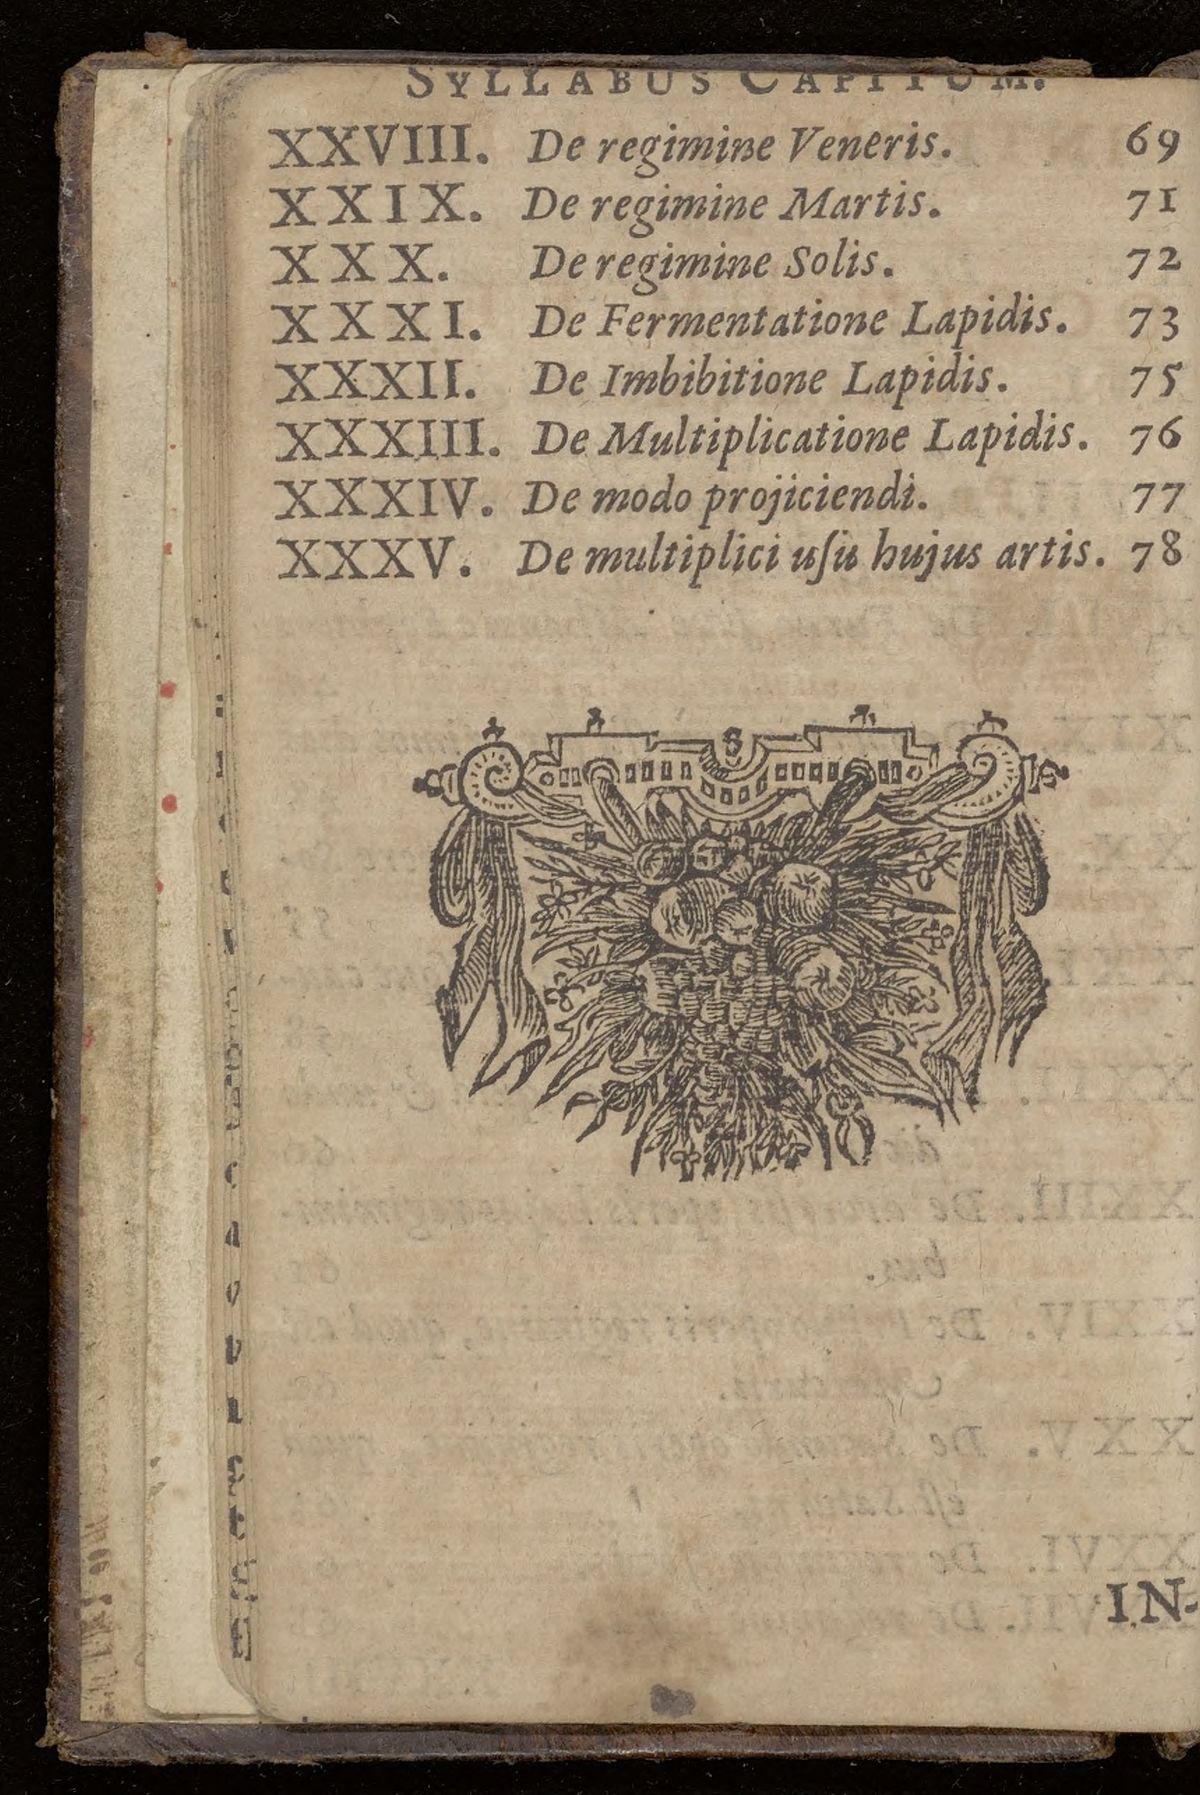 SYLLABUS CAPITUM.
XXVIII. De regimine Veneris. 69
XXIX. De regimine Martis. 71
XXX. De regimine Solis. 72
XXXI. De Fermentatione Lapidis. 73
XXXII. De Imbibitione Lapidis. 75
XXXIII. De Multiplicatione Lapidis. 76
XXXIV. De modo projiciendi. 77
XXXV. De multiplici uſu hujus artis. 78
IN-